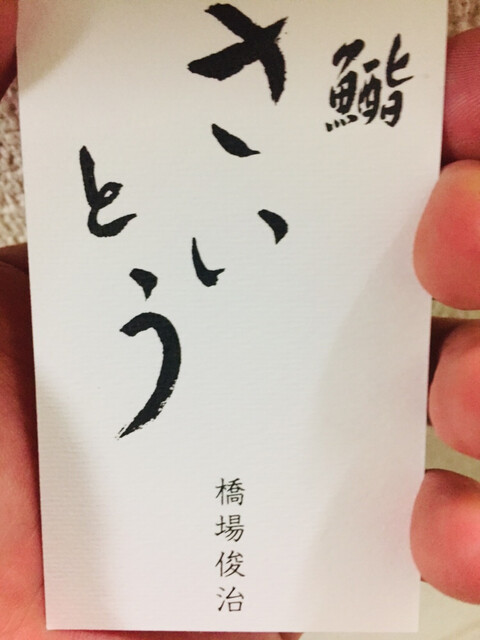 鮨
さい
とう
橋場俊治